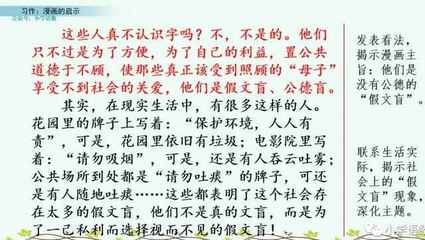 习作：漫画的启示
这些人真不认识字吗？不，不是的。他们
只不过是为了方便，为了自己的利益，置公共
道德于不顾，使那些真正该受到照顾的“母子”
享受不到社会的关爱，他们是假文盲、公德盲。
其实，在现实生活中，有很多这样的人。
花园里的牌子上写着：“保护环境，人人有
责”，可是，花园里依旧有垃圾；电影院里写
着：“请勿吸烟”，可是，还是有人吞云吐雾；
公共场所到处都是“请勿吐痰”的牌子，可还
是有人随地吐痰……这些都表明了这个社会存
在太多的假文盲，他们不是真的文盲，而是为
了一己私利而选择视而不见的假文盲！
发表看法，
揭示漫画主
旨：他们是
没有公德的
“假文盲”。
联系生活实
际，揭示社
会上的“假
文盲”现象，
深化主题。